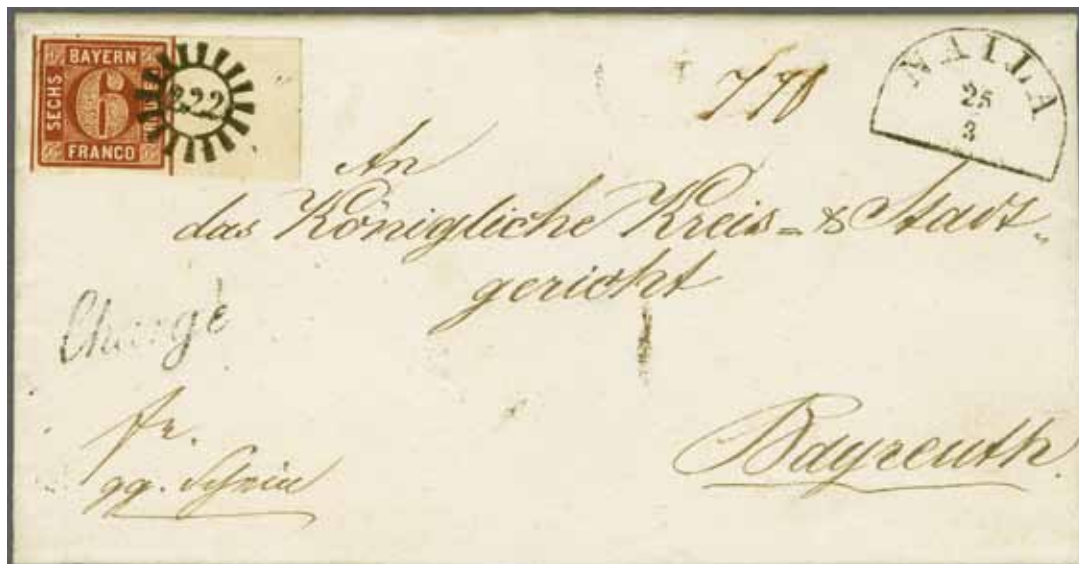 BAYERN
SECHS 6 KREUZER
FRANCO
222
NAILA
25
3
An
das Königliche Kreis- & Stadt-
gericht
Chargé
fr.
gg. Schein
Bayreuth.